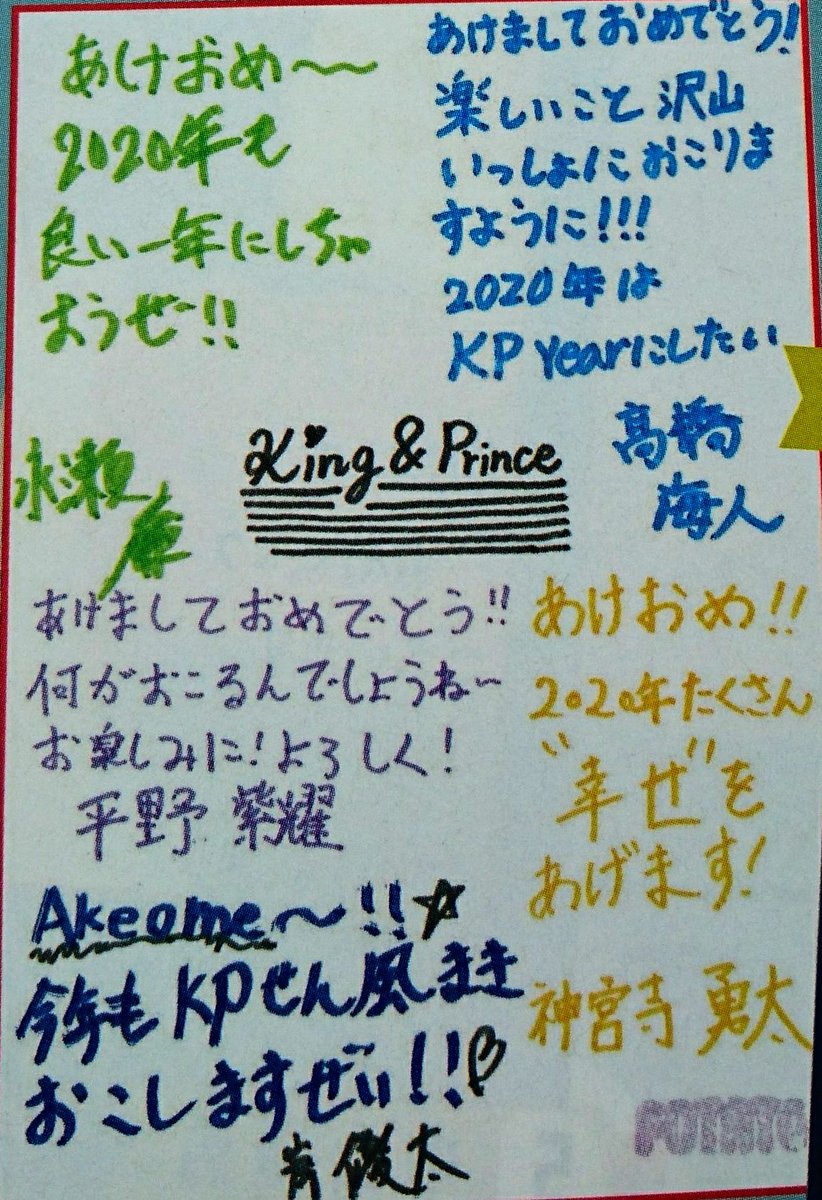 あけおめ〜〜
2020年も
良い一年にしちゃ
おうぜ!!
永瀬
廉
あけましておめでとう!
楽しいこと 沢山
いっしょにおこりま
すように!!!
2020年は
KP Yearにしたい
高橋
海人
King & Prince
あけましておめでとう!!
何がおこるんでしょうね〜
お楽しみに!よろしく!
平野 紫耀
あけおめ!!
2020年たくさん
"幸せ"を
あげます!
神宮寺 勇太
Akeome〜!!☆
今年もKPせん風まき
おこしますぜぃ!!♡
岸 優太